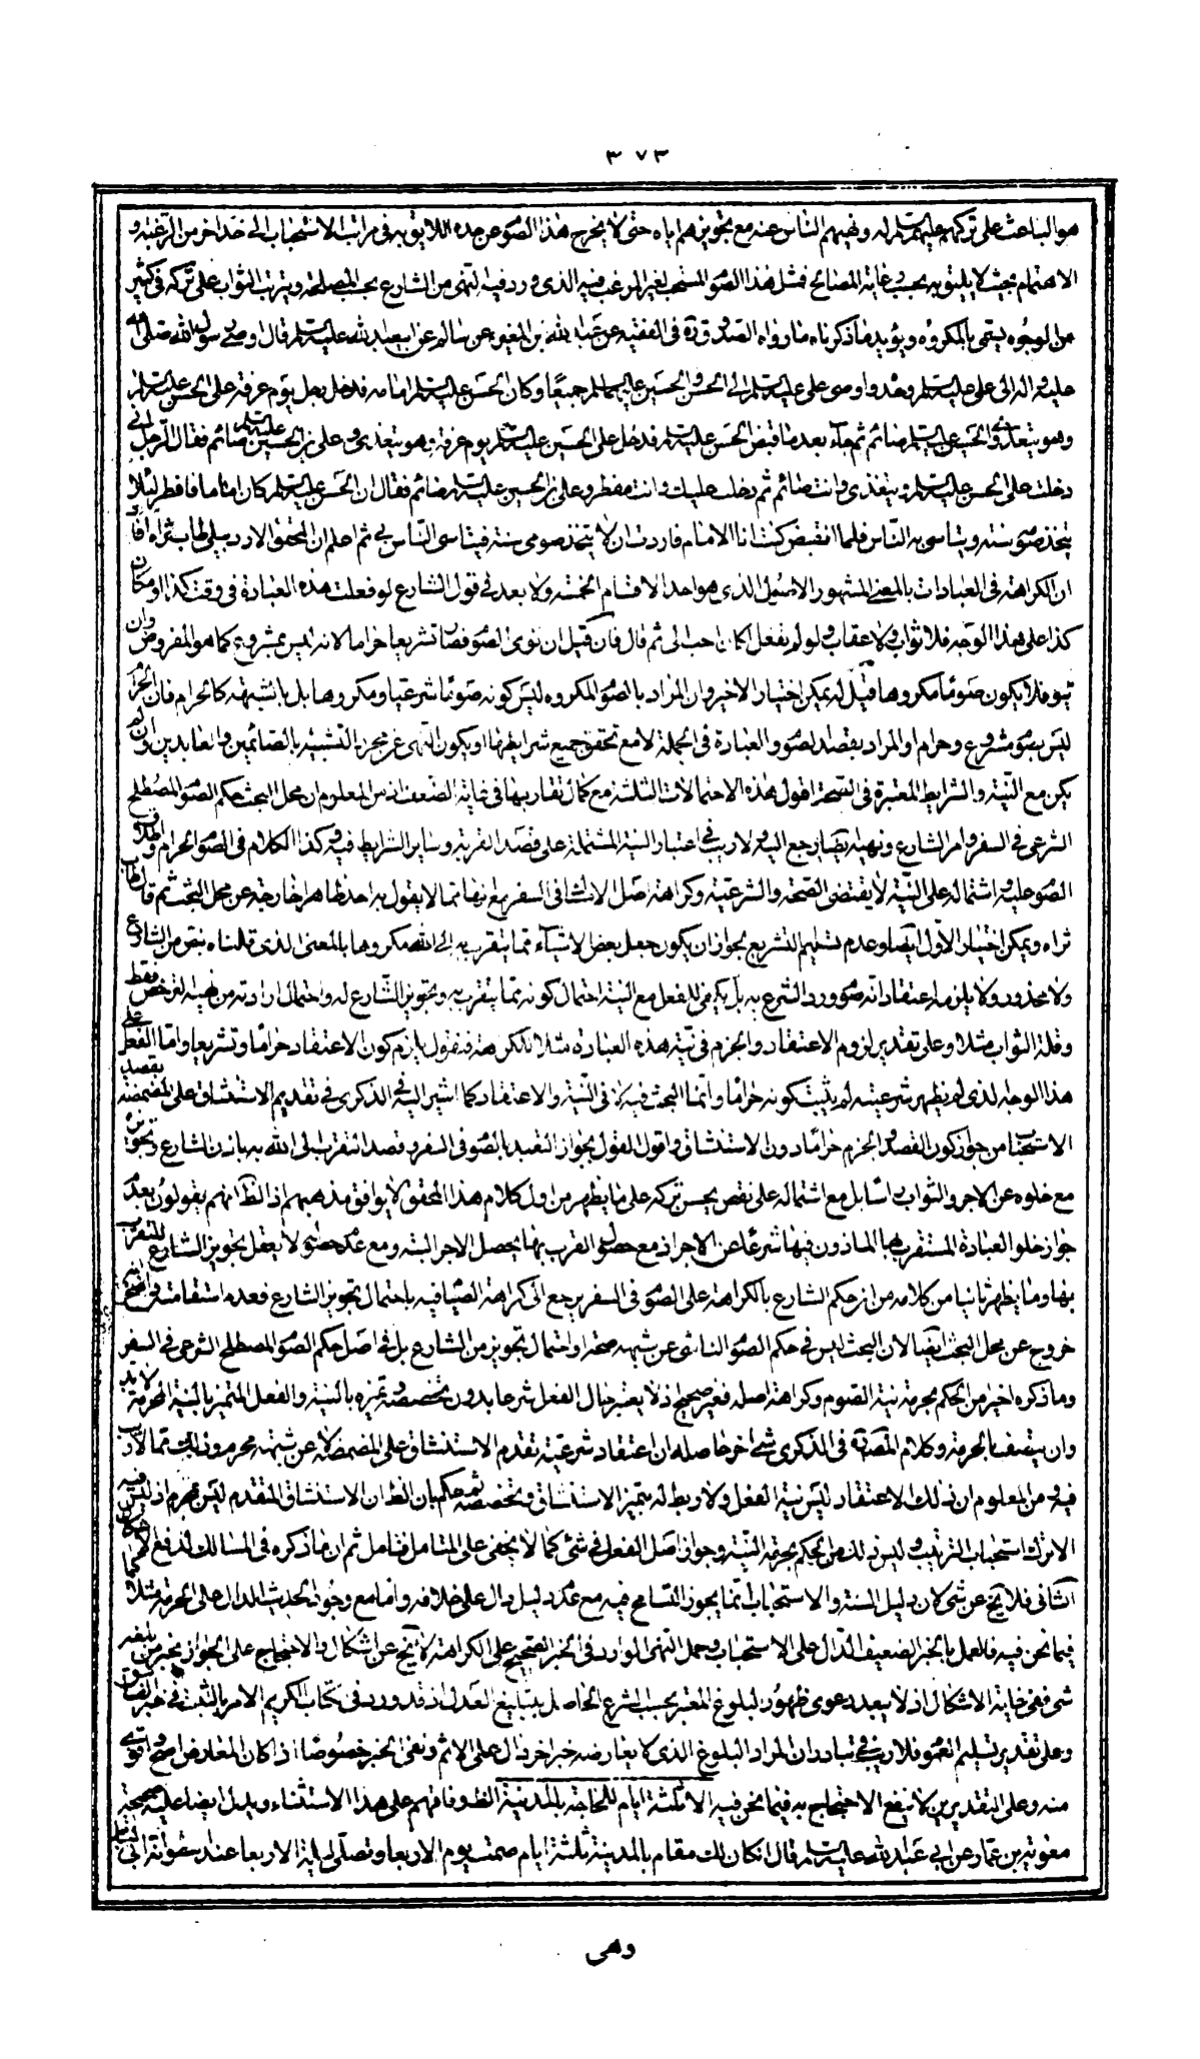 ٣٧٣
هو الباعث على تركهم عليهم السلام له ونهيهم الناس عنه مع تجويزهم اياه حتى لا يخرج هذا الصوم عن حده اللايق به في مراتب الاستحباب الى حد اخر من الرغبة و
الاهتمام بحيث لا يليق به بحسب غاية المصالح فمثل هذا الصوم المستحب لغير المرغب فيه الذي ورد فيه النهي من الشارع بحسب المصلحة ويترتب الثواب على تركه في كثير
من الوجوه يسمى بالمكروه ويؤيد ما ذكرناه ما رواه الصدوق ره في الفقيه عن عبد الله بن المغيرة عن سالم عن ابي عبد الله عليه السلم قال اوصى رسول الله صلى الله
عليه واله الى علي عليه السلم وحده واوصى علي عليه السلم الى الحسن والحسين عليهما السلم جميعا وكان الحسن عليه السلم امامه فدخل رجل يوم عرفة على الحسن عليه السلم
وهو يتغدى والحسين عليه السلم صائم ثم جاء بعد ما قبض الحسن عليه السلم فدخل على الحسين عليه السلم يوم عرفة وهو يتغدى وعلي بن الحسين عليه السلم صائم فقال له الرجل اني
دخلت على الحسن عليه السلم وهو يتغذى وانت صائم ثم دخلت عليك وانت مفطر وعلي بن الحسين عليه السلم صائم فقال ان الحسن عليه السلم كان اماما فافطر لئلا
يتخذ صومه سنة ويتاسى به الناس فلما ان قبض كنت انا الامام فاردت ان لا يتخذ صومي سنة فيتاسى الناس بي ثم اعلم ان المحقق الاردبيلي طاب ثراه افاد
ان الكراهة في العبادات بالمعنى المشهور الاصيل الذي هو احد الاقسام الخمسة ولا بعد في قول الشارع لو فعلت هذه العبادة في وقت كذا او مكان
كذا على هذا الوجه فلا ثواب ولا عقاب ولو لم تفعل كان احب الى ثم قال فان قيل ان نوى الصوم فصار تشريعا حراما لانه ليس بمشروع كما هو المفروض وان لم
ينو فلا يكون صوما مكروها قيل له يمكن اختيار الاخير وان المراد بالصوم المكروه ليس كونه صوما شرعيا ومكروها بل بالشبهة كالحرام فان الحرام
ليس بصوم مشروع وحرام او المراد بقصد الصوم والعبادة في الجملة لا مع تحقق جميع شرايطها او يكون النهي عن مجرد التشبيه بالصائمين والعابدين وان لم
يكن مع النية والشرايط المعتبرة في الصحة اقول هذه الاحتمالات الثلثة مع كمال تقاربها في غاية الضعف اذ من المعلوم ان محل البحث حكم الصوم المصطلح
الشرعي في السفر وامر الشارع ونهيه ايضا يرجع اليه ولا ريب في اعتبار النية المشتملة على قصد القربة وساير الشرايط فيه وكذا الكلام في الصوم الحرام واطلاق
الصوم عليه واشتماله على النية لا يقتضي الصحة والشرعية وكراهة اصل الامساك في السفر مع انها مما لا يقول به احد ظاهرا خارجة عن محل البحث ثم قال طاب
ثراه ويمكن اختيار الاول ايضا وعدم تسليم التشريع بجواز ان يكون جعل بعض الاشياء مما يتقرب به الى الله مكروها بالمعنى الذي قلناه بنص من الشارع
ولا محذور ولا يلزمه اعتقاد انه صوم ورد الشرع به بل يكفي للفعل مع النية احتمال كونه مما يتقرب به وتجويز الشارع له واحتمال ارادته من نهيه لغرض فقط
وقلة الثواب مثلا وعلى تقدير لزوم الاعتقاد والجزم في نية هذه العبادة مثلا بالكراهة فنقول يلزم كون الاعتقاد حراما وتشريعا واما الفعل على
هذا الوجه الذي لم يظهر شرعيته لم يثبت كونه حراما وانما البحث فيه في النية والاعتقاد كما اشير اليه في الذكرى في تقديم الاستنشاق على المضمضة بقصد
الاستحباب من جواز كون القصد والجزم حراما دون الاستنشاق واقول القول بجواز التعبد بالصوم في السفر وقصد التقرب الى الله به باذن الشارع وتجويزه
مع خلوه عن الاجر والثواب راسا بل مع اشتماله على نقص يحسن تركه على ما يظهر من اول كلام هذا المحقق لا يوافق مذهبهم اذ الظ انهم يقولون بعدم
جواز خلو العبادة المستقرب بها الماذون فيها شرعا عن الاجر اذ مع حصول القرب بها يحصل الاجر البتة ومع عدم حصوله لا يعقل تجويز الشارع للتقرب
بها وما يظهر ثانيا من كلامه من ان حكم الشارع بالكراهة على الصوم في السفر يرجع الى كراهة الصيام فيه باحتمال تجويز الشارع فعدم استقامته واضح
خروج عن محل البحث ايضا لان البحث ليس في حكم الصوم الناشي عن شبهة صحته او احتمال تجويز من الشارع بل في اصل حكم الصوم المصطلح الشرعي في السفر
وما ذكره اخيرا من الحكم بحرمة نية الصوم وكراهة اصله فغير صحيح اذ لا يعتبر حال الفعل شرعا بدون تخصصه وتميزه بالنية والفعل المتميز بالنية المحرمة لا بد
وان يتصف بالحرمة وكلام المصنف في الذكرى شئ اخر حاصله ان اعتقاد شرعية تقدم الاستنشاق على المضمضة لا عن شبهة محرم وذلك مما لا ريب
فيه ومن المعلوم ان ذلك الاعتقاد ليس نية الفعل ولا ربط له بتميز الاستنشاق وتخصصه ثم حكم بان الظ ان الاستنشاق المتقدم ليس محرم اذ ليس فيه
الا ترك استحباب الترتيب وليس ذلك من الحكم بحرمة النية وجواز اصل الفعل في شئ كما لا يخفى على المتامل فتامل ثم ان ما ذكره في المسالك لدفع الاشكال
الثاني فلا يخ عن شئ لان دليل السنة والاستحباب انما يجوز التسامح فيه مع عدم دليل دال على خلافه واما مع وجود الحديث الدال على الحرمة مثلا كما
فيما نحن فيه فالعمل بالخبر الضعيف الدال على الاستحباب وحمل النهي الوارد في الخبر الصحيح على الكراهة لا يخ عن اشكال والاحتجاج على الجواز بخبر من بلغه
شئ ففي غاية الاشكال اذ لا يبعد دعوى ظهور البلوغ المعتبر بحسب الشرع الحاصل بتبليغ العدل اذ قد ورد في كتاب الكريم الامر بالتثبت في خبر الفاسق
وعلى تقدير تسليم العموم فلا ريب في تبادر ان المراد البلوغ الذي لا يعارضه خبر اخر دال على الاثم ونفي الخير خصوصا اذا كان المعارض اصح واقوى
منه وعلى التقديرين لا ينفع الاحتجاج به فيما نحن فيه الا ثلثة ايام للحاجة بالمدينة الظ وفاقهم على هذا الاستثناء ويدل ايضا عليه صحيحة
معوية بن عمار عن ابي عبد الله عليه السلم قال ان كان لك مقام بالمدينة ثلثة ايام صمت يوم الاربعا وتصلي ليلة الاربعا عند اسطوانة ابي لبابة
وهى